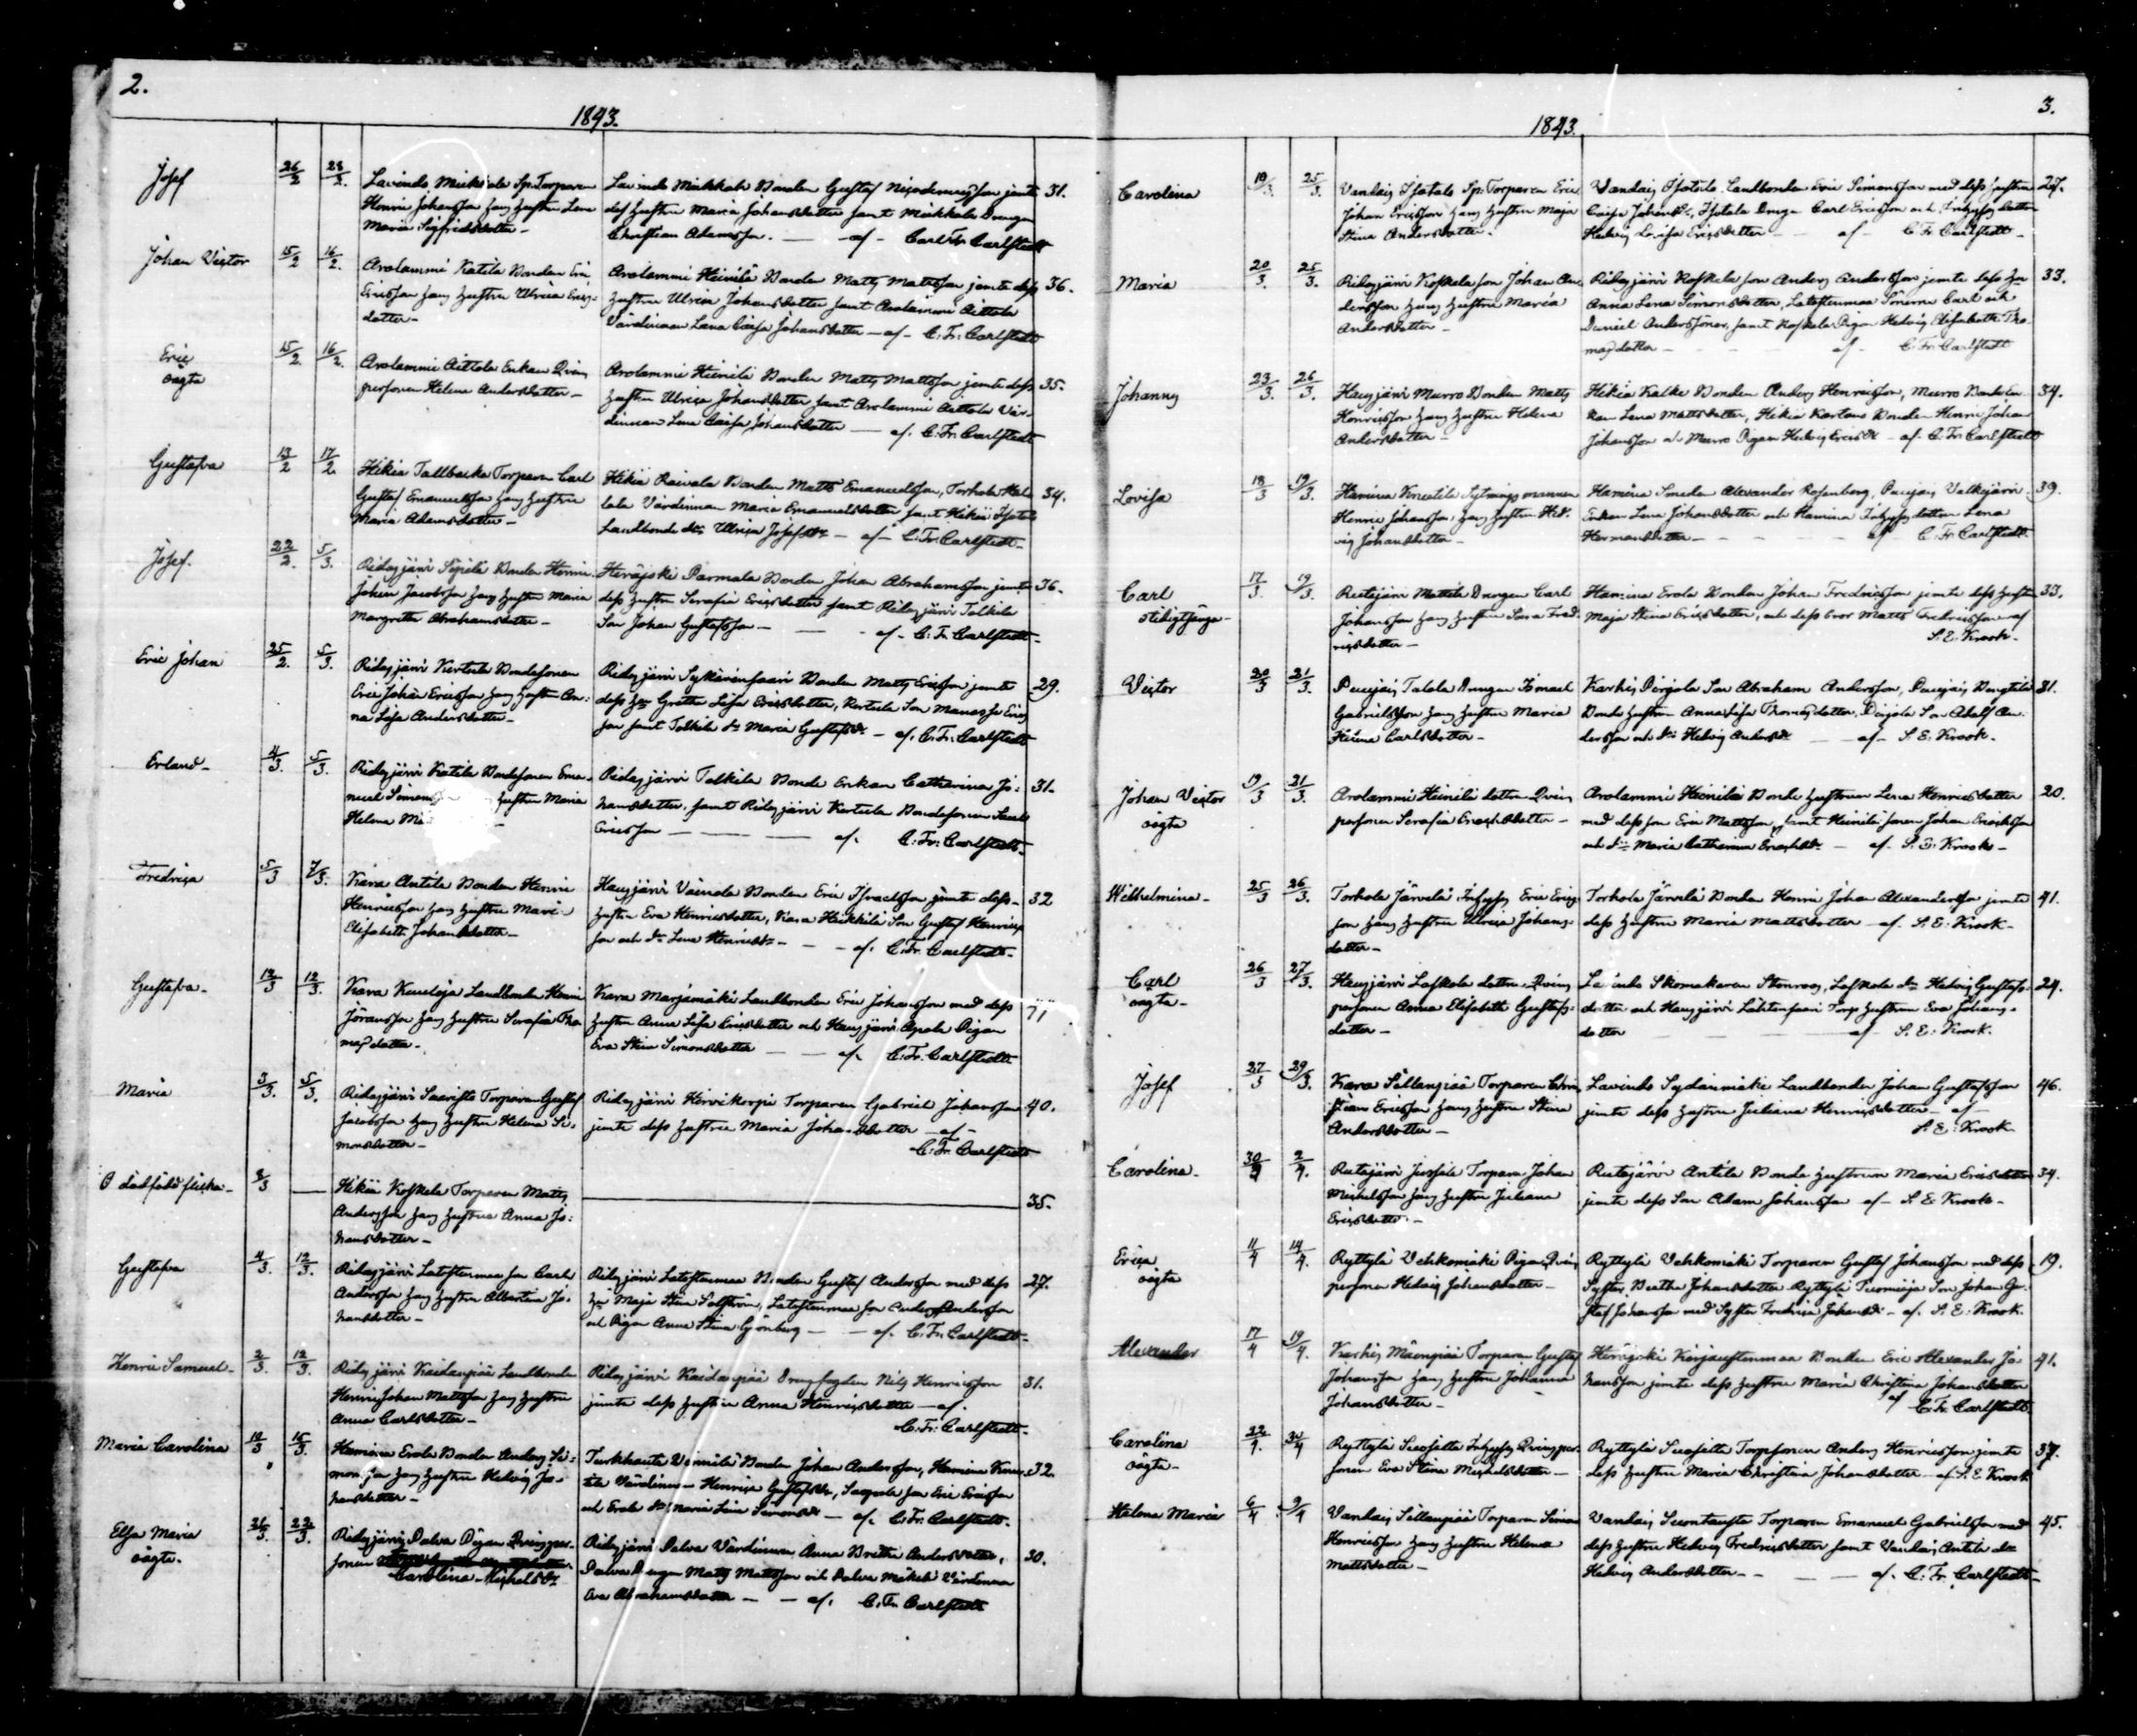 2.
1843.
Josef
26/2
28/2.
Lavindo Mickkola Sp. Torparen
Henric Johansson hans hustru Lena
Maria Sigfridsdotter -
Lavindo Mickkola Bonden Gustaf Nicodemusson jemte
dess hustru Maria Johansdotter samt Mickkola Drengen
Christian Adamsson. - af - Carl Fr. Carlstedt
31.
Johan Victor
15/2
16/2.
Arolammi Katila Bonden Eric
Ericsson hans hustru Ulrica Erics-
dotter -
Arolammi Heinilä Bonden Matts Mattsson jemte dess
hustru Ulrica Johansdotter samt Arolammi Aittola
Värdinnan Lena Caisa Johansdotter - af - C. Fr. Carlstedt
36.
Eric
oägta
15/2
16/2.
Arolammi Aittola Enkan Qvins
personen Helena Andersdotter -
Arolammi Heinilä Bonden Matts Mattsson jemte dess
hustru Ulrica Johansdotter samt Arolammi Aittola Vär-
dinnan Lena Caisa Johansdotter - af. C. Fr. Carlstedt
35.
Gustafva
13/2
17/2.
Hikiä Tallbacka Torparen Carl
Gustaf Emanuelsson hans hustru
Maria Adamsdotter -
Hikiä Raivala Bonden Matts Emanuelsson, Torhola
Värdinnan Maria Emanuelsdotter samt Hikiä
Landbonde dr Ulrica Josefsdr - af - C. Fr. Carlstedt
34.
Josef.
22/2.
5/3.
Ridasjärvi Sepilä Bonden Henric
Johan Jacobsson hans hustru Maria
Margretha Abrahamsdotter -
Herajoki Parmala Bonden Johan Abrahamsson jemte
dess hustru Serafia Ericsdotter samt Ridasjärvi Talkila
Son Johan Gustafsson - af - C. Fr. Carlstedt
36.
Eric Johan
25/2.
5/3.
Ridasjärvi Kertula Bondesonen
Eric Johan Ericsson hans hustru An-
na Lisa Andersdotter -
Ridasjärvi Sykävensaari Bonden Matts Ericsson jemte
dess hu Gretha Lisa Ericsdotter, Kertula Son Manasse Erics
son samt Talkila dr Maria Gustafsdr - af. C. Fr. Carlstedt
29.
Erland -
4/3.
5/3.
Ridasjärvi Katila Bondesonen Ema-
nuel hustru Maria
Helena
Ridasjärvi Talkila Bonde Enkan Catharina Jo-
hansdotter, samt Ridasjärvi Kertula Bondesonen
Ericsson - af. C. Fr. Carlstedt
31.
Fredrica
5/3
7/3.
Kara Antila Bonden Henric
Henricsson hans hustru Maria
Elisabeth Johansdotter -
Hausjärvi Väinola Bonden Eric Israelsson jemte dess
hustru Eva Henricsdotter, Kara Heikkilä Son Gustaf Henrics
son och dr Lena Henricsdr - af. C. Fr. Carlstedt
32
Gustafva -
12/3
12/3.
Kara Landbonden Henric
Jöransson hans hustru Serafia Tho
masdotter -
Kara Marjamäki Landbonden Eric Johansson med dess
hustru Anna Lisa Ericsdotter och Hausjärvi Pigan
Eva Stina Simonsdotter - af. C. Fr. Carlstedt
Maria
3/3.
5/3.
Ridasjärvi Saaristo Torparen Gustaf
Jacobsson hans hustru Helena Si-
monsdotter -
Ridasjärvi Hirvikorpi Torparen Gabriel Johansson
jemte dess hustru Maria Johansdotter - af -
C. Fr. Carlstedt
40.
O dödfödd flicka -
8/3
Hikiä Koskela Torparen Matts
Andersson hans hustru Anna Jo-
hansdotter -
35.
Gustafva
4/3.
12/3.
Ridasjärvi Latostenmaa son Carl
Andersson hans hustru Albertina Jo-
hansdotter -
Ridasjärvi Latostenmaa Bonden Gustaf Andersson med dess
hu Maja Stina Latostenmaa son Anders Andersson
och Pigan Anna Stina Grönberg - af. C. Fr. Carlstedt
27.
Henric Samuel -
2/3.
12/3.
Ridasjärvi Kaidanpää Landbonden
Henric Johan Mattsson hans hustru
Anna Carlsdotter -
Ridasjärvi Kaidanpää Nils Henricsson
jemte dess hustru Anna Henricsdotter - af.
C. Fr. Carlstedt
31.
Maria Carolina
10/3
15/3.
Hamina Erola Bonden Anders Si-
monsson hans hustru Hedvig Jo-
hansdotter -
Turkhauta Bonden Johan Andersson, Hamina
Värdinnan Henrica Gustafsdr, son Eric Ericsson
och Erola dr Maria Lisa Simonsdr - af. C. Fr. Carlstedt
32.
Elsa Maria
oägta.
21/3.
22/3.
Ridasjärvi Palva Pigan Qvinsper-
sonen
Carolina Michelsdr
Ridasjärvi Palva Värdinnan Anna Britha Andersdotter,
Palva Drengen Matts Mattsson och Palva Mäkelä Värdinnan
Eva Abrahamsdotter - af. C. Fr. Carlstedt
30.
3.
1843.
Carolina
19/3
25/3.
Vandais Isotalo Sp. Torparen Eric
Johan Ericsson hans hustru Maja
Stina Andersdotter.
Vandais Isotalo Landbonden Eric Simonsson med dess hustru
Caisa Johansdr, Isotalo Drengen Carl Ericsson och Inhyses dotter
Hedvig Lovisa Ericsdotter - af - C. Fr. Carlstedt
27.
Maria
20/3.
25/3.
Ridasjärvi Koskela son Johan An-
dersson hans hustru Maria
Andersdotter -
Ridasjärvi Koskela son Anders Andersson jemte dess hu
Anna Lena Simonsdotter, Latostenmaa Sönerne Carl och
Daniel Anderssöner, samt Koskela Pigan Hedvig Elisabeth Tho
masdotter - af - C. Fr. Carlstedt
33.
Johannes
23/3.
26/3.
Hausjärvi Murro Bonden Matts
Henricsson hans hustru Helena
Andersdotter -
Hikiä Kalke Bonden Anders Henricsson, Murro Bonde En
kan Lena Mattsdotter, Hikiä Kartano Bonden Henric Johan
Johansson och Murro Pigan Hedvig Ericsdr - af. C. Fr. Carlstedt
34.
Lovisa
18/3
19/3.
Hamina Sytningsmannen
Henric Johansson hans hustru Hed-
vig Johansdotter -
Hamina Smeden Alexander Rosenberg, Valkejärvi
Enkan Lena Johansdotter och Hamina Inhyses dottren Lena
Hermansdotter - af C. Fr. Carlstedt
39.
Carl
17/3.
19/3.
Rutajärvi Mattila Drengen Carl
Johansson hans hustru Sara Fred-
ricsdotter -
Hamina Erola Bonden Johan Fredricsson jemte dess hustru
Maja Stina Ericsdotter, och dess bror Matts Fredricsson af
S. E. Krook -
33.
Victor
20/3
21/3.
Talola Drengen Ismael
Gabrielsson hans hustru Maria
Carlsdotter -
Karhis Pirjola Son Abraham Andersson,
Bonde hustrun Anna Lisa Thomasdotter, Pirjola Son Adolf An-
dersson och dr Hedvig Andersdr - af - S. E. Krook.
31.
Johan Victor
oägta
19/3
21/3.
Arolammi Heinilä dotter Qvins
personen Serafia Enochsdotter -
Arolammi Heinilä Bonde hustrun Lena Henricsdotter
med dess son Eric Mattsson, samt Heinilä sonen Johan Enochsson
och dr Maria Catharina Enochsdr - af - S. E. Krook -
20.
Wilhelmina -
25/3
26/3.
Torhola Järvelä Inhyses Eric Erics
son hans hustru Ulrica Johans-
dotter -
Torhola Järvelä Bonden Henric Johan Alexandersson jemte
dess hustru Maria Mattsdotter - af. S. E. Krook -
41.
Carl
oägta -
26/3
27/3.
Hausjärvi Laskola dotter Qvins
personen Anna Elisabeth Gustafs-
dotter -
Skomakaren Stenroos, Laskola dr Hedvig Gustafs-
dotter och Hausjärvi Torp hustrun Eva Johans-
dotter - af S. E. Krook.
24.
Josef
27/3
29/3.
Kara Sällanpää Torparen Chris
tian Ericsson hans hustru Stina
Andersdotter -
Lavindo Sydänmäki Landbonden Johan Gustafsson
jemte dess hustru Juliana Henricsdotter - af -
S. E. Krook
46.
Carolina -
30/3
2/4.
Rutajärvi Jussila Torparen Johan
Michelsson hans hustru Juliana
Ericsdotter -
Rutajärvi Antila Bonde hustrun Maria Ericsdotter
jemte dess Son Adam Johansson af - S. E. Krook -
34.
Erica
oägta
11/4
14/4.
Ryttylä Vehkomäki Pigan Qvins
personen Hedvig Johansdotter -
Ryttylä Vehkomäki Torparen Gustaf Johansson med dess
Syster Beatha Johansdotter Ryttylä Son Johan Gu-
staf Johansson med Syster Fredrica Johansdr - af. S. E. Krook.
19.
Alexander
17/4
19/4.
Karhis Mäenpää Torparen Gustaf
Johansson hans hustru Johanna
Johansdotter -
Herajoki Bonden Eric Alexander Jo
hansson jemte dess hustru Maria Christina Johansdotter
af C. Fr. Carlstedt
41.
Carolina
oägta -
22/4.
30/4
Ryttylä Inhyses Qvinsper-
sonen Eva Stina Michelsdotter -
Ryttylä Torpsonen Anders Henricsson jemte
dess hustru Maria Christina Johansdotter - af S. E. Krook
37.
Helena Maria
6/4
9/4
Vandais Sällanpää Torparen Simon
Henricsson hans hustru Helena
Mattsdotter -
Vandais Torparen Emanuel Gabrielsson med
dess hustru Hedvig Fredricsdotter samt Vandais Antila dr
Hedvig Andersdotter - af. C. Fr. Carlstedt -
45.